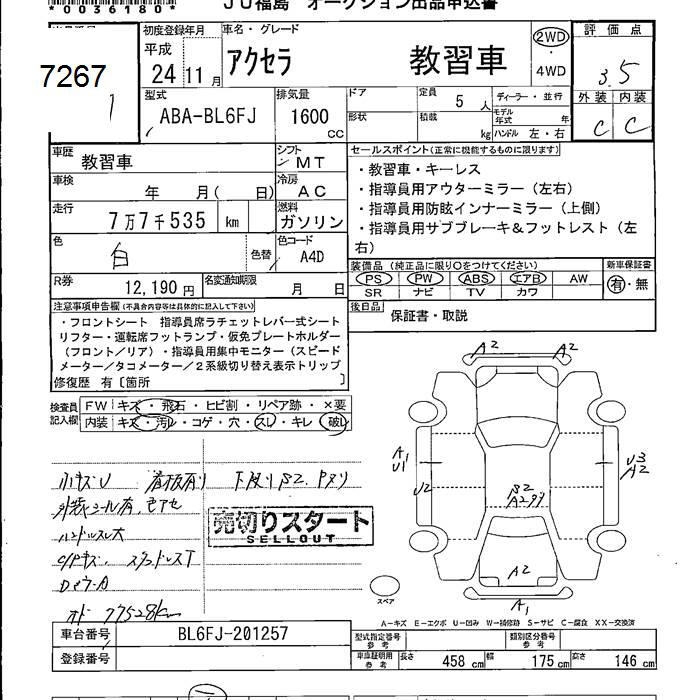 *00036180*
JU福島 オークション出品申込書
7267
初度登録年月
平成
24 11 月
車名・グレード
アクセラ 教習車
2WD
・
4WD
評価点
3.5
外装 内装
C C
型式
ABA-BL6FJ
排気量
1600
CC
ドア
形状
定員
5 人
積載
kg
ディーラー・並行
モデル年式 年
ハンドル 左・右
車歴
教習車
シフト
MT
車検
年 月( 日)
冷房
AC
走行
7万7千535 km
燃料
ガソリン
色
白
色替
色コード
A4D
R券
12,190 円
名変通知期限
月 日
セールスポイント(正常に機能するものに限ります)
・教習車・キーレス
・指導員用アウターミラー(左右)
・指導員用防眩インナーミラー(上側)
・指導員用サブブレーキ&フットレスト(左
右)
装備品(純正品に限り○をつけてください)
PS PW ABS エアB AW
SR ナビ TV カワ
新車保証書
有・無
後日品
保証書・取説
注意事項申告欄(不具合内容等は具体的に記入して下さい)
・フロントシート 指導員席ラチェットレバー式シート
リフター・運転席フットランプ・仮免プレートホルダー
(フロント/リア)・指導員用集中モニター(スピード
メーター/タコメーター/2系統切り替え表示トリップ
修復歴 有〔箇所 〕
検査員
記入欄
FW キズ・飛石・ヒビ割・リペア跡・×要
内装 キズ・汚レ・コゲ・穴・スレ・キレ 破レ
小キズU 看板有り 下廻りS2.Pヌリ
外装シール有.色アセ
ハンドルスレ大
スタッドレスT
オド 77528km
売切りスタート
SELLOUT
A2 A2
A1
U1
U2
U3
A2
S2
A2
A2
A1
スペア
A-キズ E-エクボ U-凹み W-補修跡 S-サビ C-腐食 XX-交換済
車台番号
BL6FJ-201257
登録番号
型式指定番号
参考
類別区分番号
参考
車庫証明用
参考
長さ 458 cm 幅 175 cm 高さ 146 cm